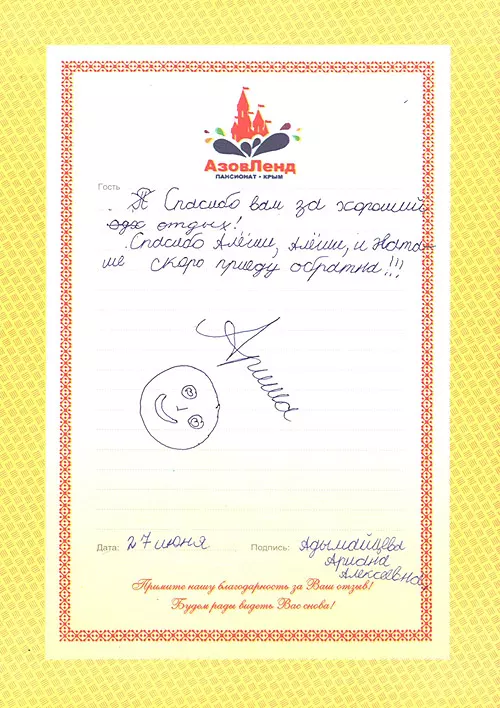 АзовЛенд
ПАНСИОНАТ • КРЫМ
Гость
Спасибо вам за хороший
отдых!
Спасибо Алёши, Алёши, и Ната-
ше скоро приеду обратна!!!
Ариша
Дата: 27 июня Подпись: Адымайцева
Ариана
Алексеевна
Примите нашу благодарность за Ваш отзыв!
Будем рады видеть Вас снова!